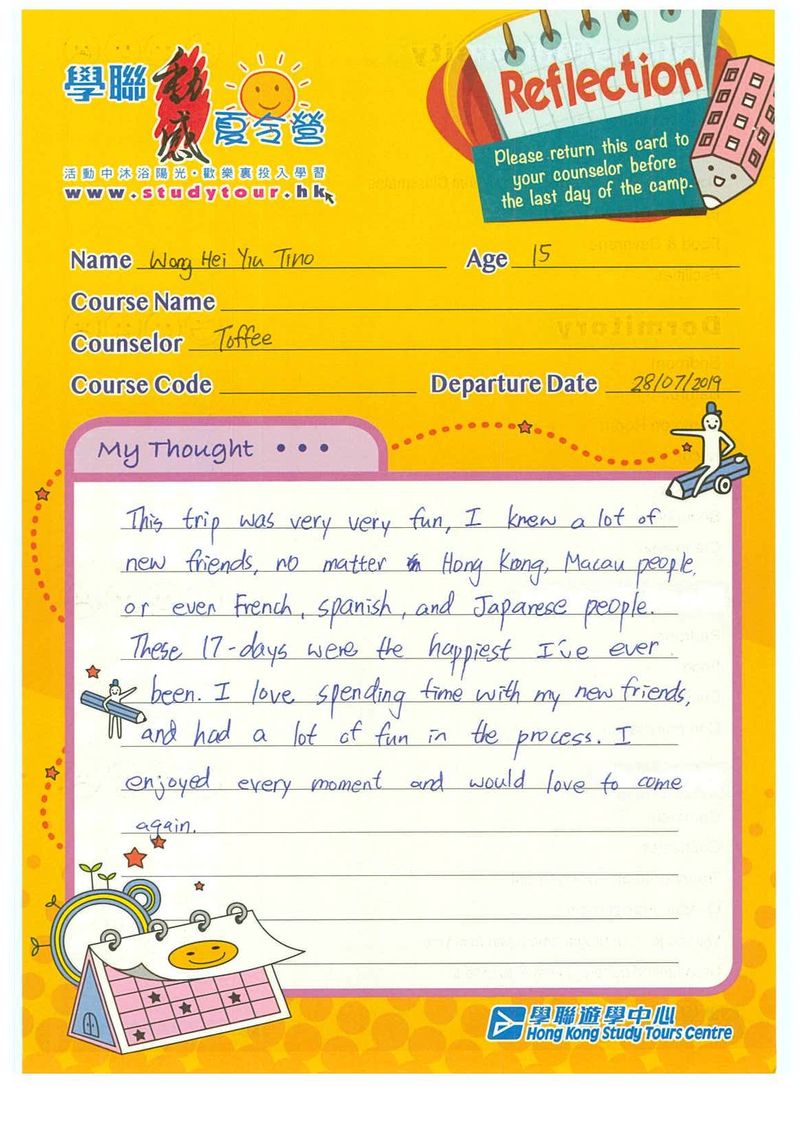 學聯 動感 夏令營
活動中沐浴陽光·歡樂裏投入學習
www.studytour.hk
Reflection
Please return this card to
your counselor before
the last day of the camp.
Name Wong Hei Yiu Tino Age 15
Course Name
Counselor Toffee
Course Code Departure Date 28/07/2019
My Thought •••
This trip was very very fun, I knew a lot of
new friends, no matter Hong Kong, Macau people,
or even French, spanish, and Japanese people.
These 17-days were the happiest I've ever
been. I love spending time with my new friends,
and had a lot of fun in the process. I
enjoyed every moment and would love to come
again.
學聯遊學中心
Hong Kong Study Tours Centre